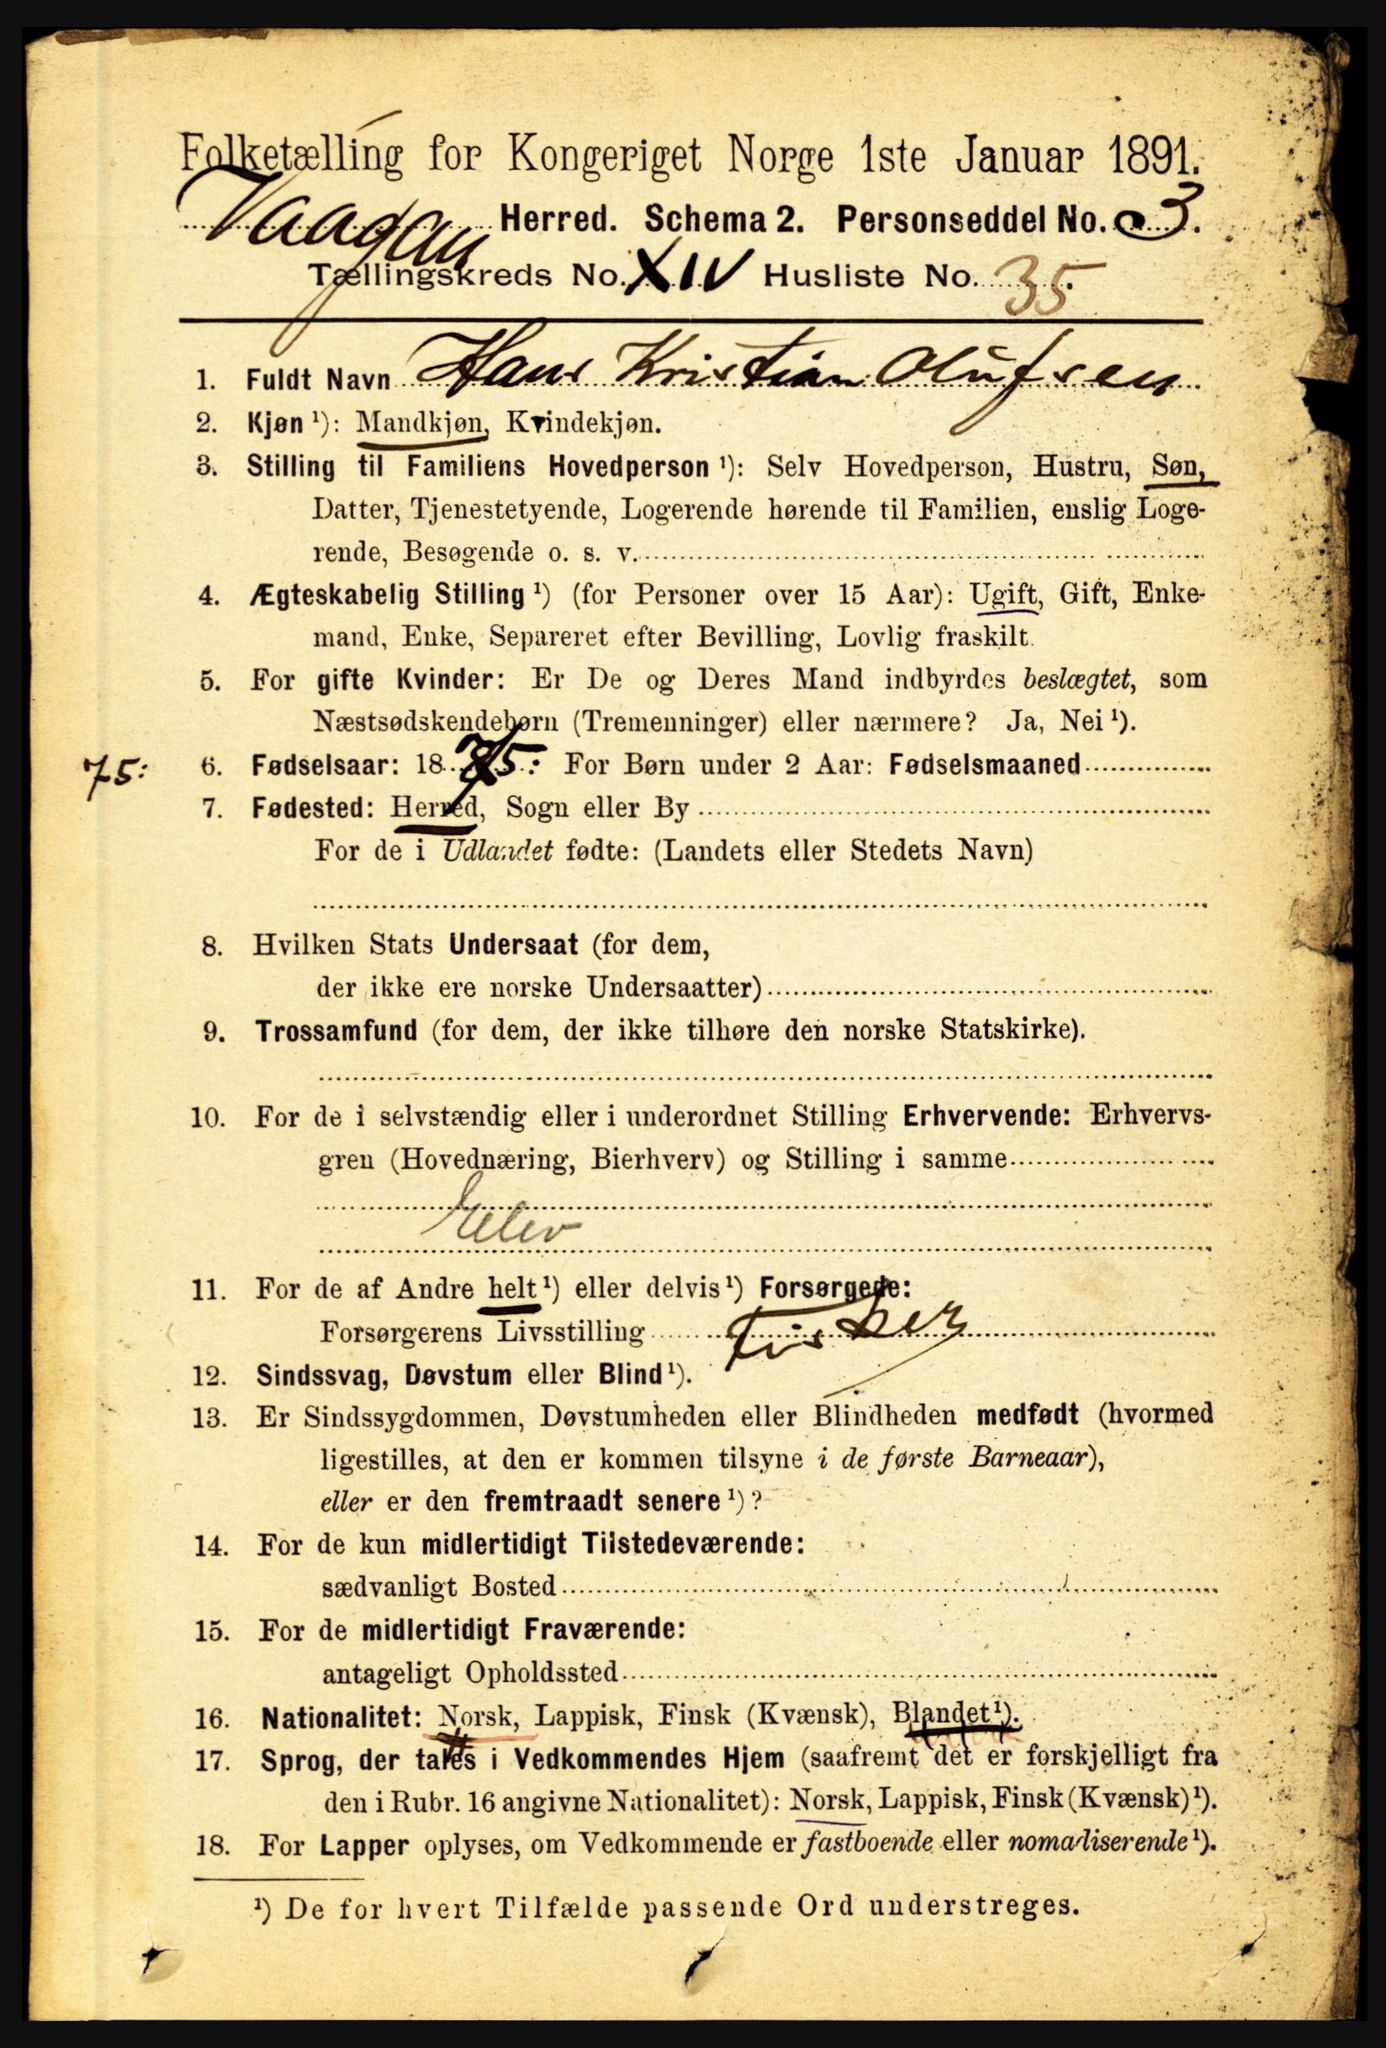 Folketælling for Kongeriget Norge 1ste Januar 1891.
Vaagan Herred. Schema 2. Personseddel No. 3.
Tællingskreds No. XIV Husliste No. 35.
1. Fuldt Navn Hans Kristian Olufsen
2. Kjøn ¹): Mandkjøn, Kvindekjøn.
3. Stilling til Familiens Hovedperson ¹): Selv Hovedperson, Hustru, Søn,
Datter, Tjenestetyende, Logerende hørende til Familien, enslig Loge-
rende, Besøgende o. s. v.
4. Ægteskabelig Stilling ¹) (for Personer over 15 Aar): Ugift, Gift, Enke-
mand, Enke, Separeret efter Bevilling, Lovlig fraskilt.
5. For gifte Kvinder: Er De og Deres Mand indbyrdes beslægtet, som
Næstsødskendebørn (Tremenninger) eller nærmere? Ja, Nei ¹).
75: 6. Fødselsaar: 1875: For Børn under 2 Aar: Fødselsmaaned
7. Fødested: Herred, Sogn eller By
For de i Udlandet fødte: (Landets eller Stedets Navn)
8. Hvilken Stats Undersaat (for dem,
der ikke ere norske Undersaatter)
9. Trossamfund (for dem, der ikke tilhøre den norske Statskirke).
10. For de i selvstændig eller i underordnet Stilling Erhvervende: Erhvervs-
gren (Hovednæring, Bierhverv) og Stilling i samme
Elev
11. For de af Andre helt ¹) eller delvis ¹) Forsørgede:
Forsørgerens Livsstilling Fisker
12. Sindssvag, Døvstum eller Blind ¹).
13. Er Sindssygdommen, Døvstumheden eller Blindheden medfødt (hvormed
ligestilles, at den er kommen tilsyne i de første Barneaar),
eller er den fremtraadt senere ¹)?
14. For de kun midlertidigt Tilstedeværende:
sædvanligt Bosted
15. For de midlertidigt Fraværende:
antageligt Opholdssted
16. Nationalitet: Norsk, Lappisk, Finsk (Kvænsk), Blandet ¹).
17. Sprog, der tales i Vedkommendes Hjem (saafremt det er forskjelligt fra
den i Rubr. 16 angivne Nationalitet): Norsk, Lappisk, Finsk (Kvænsk) ¹).
18. For Lapper oplyses, om Vedkommende er fastboende eller nomadiserende ¹).
¹) De for hvert Tilfælde passende Ord understreges.